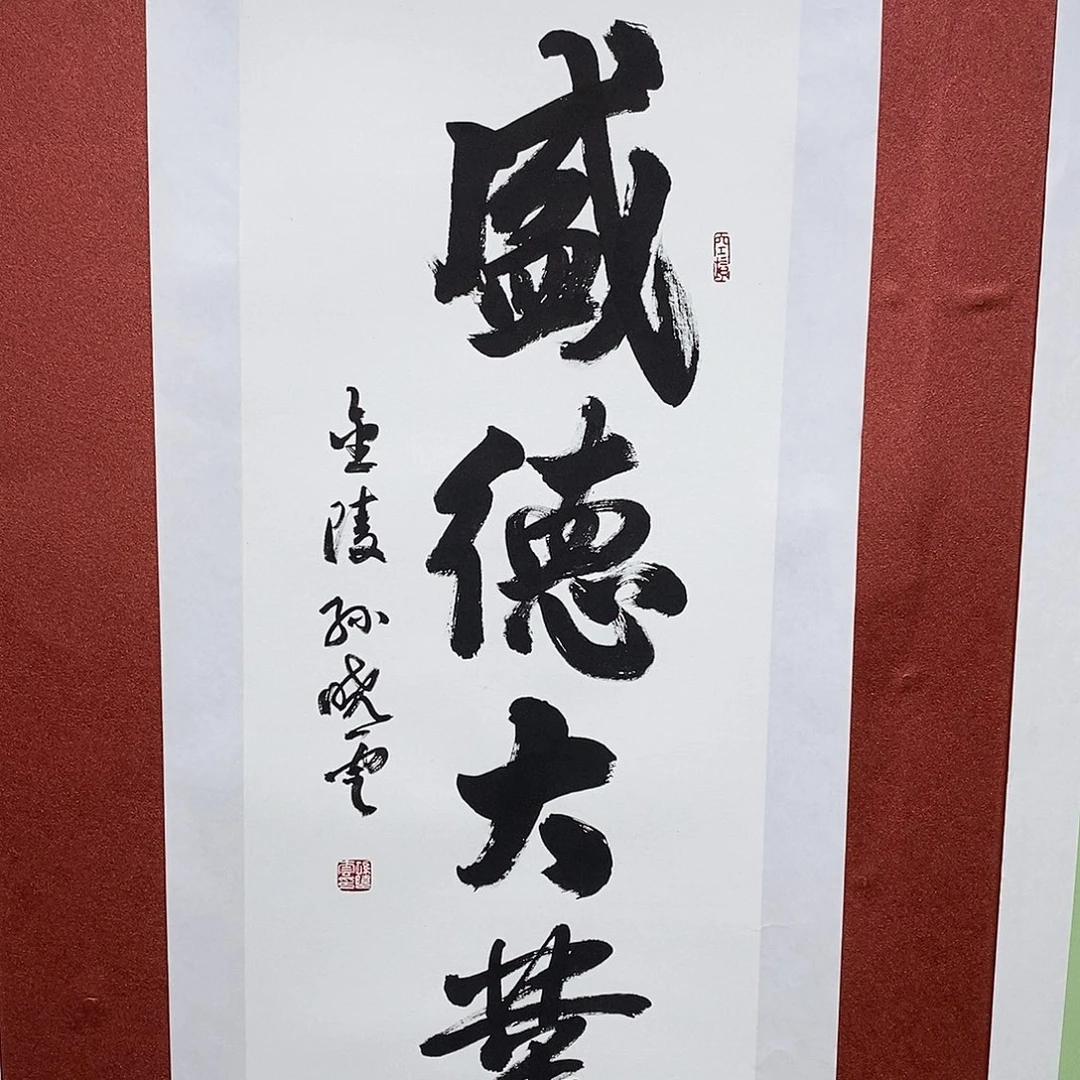 盛德大業
金陵孙晓雲